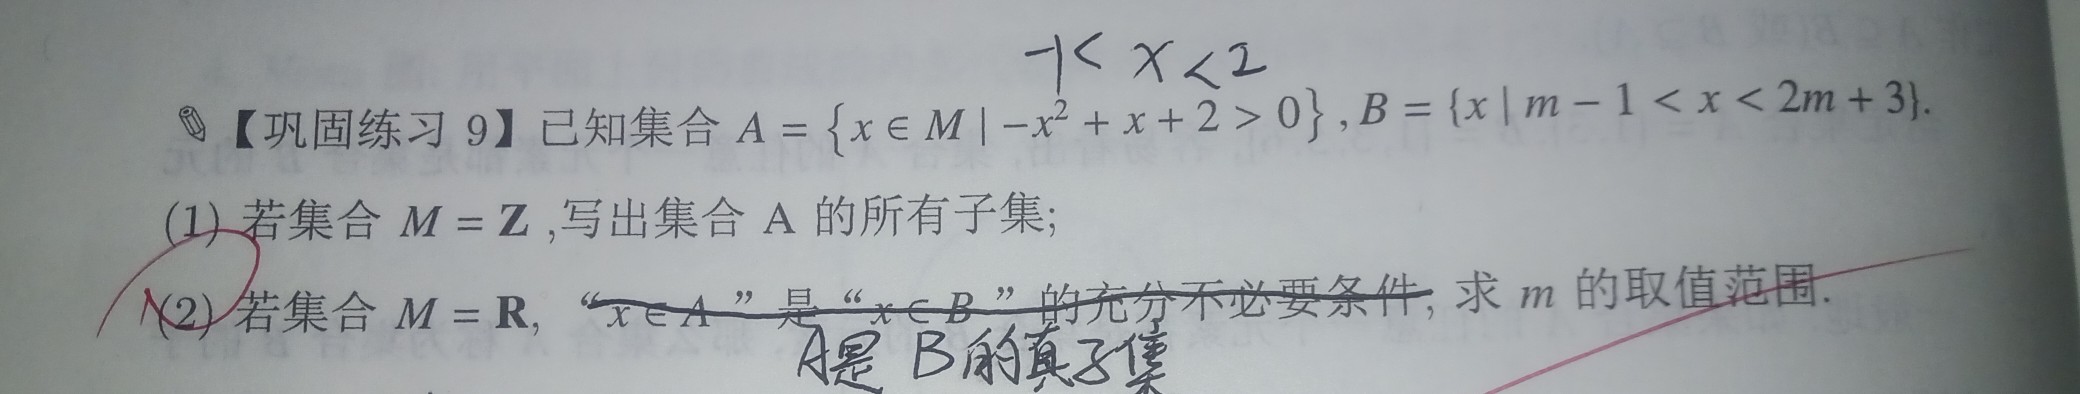 -1<x<2
【巩固练习 9】已知集合 A = {x ∈ M | -x² + x + 2 > 0}, B = {x | m - 1 < x < 2m + 3}.
(1) 若集合 M = Z ,写出集合 A 的所有子集;
(2) 若集合 M = R, “x ∈ A ” 是 “x ∈ B ” 的充分不必要条件, 求 m 的取值范围.
A是B的真子集